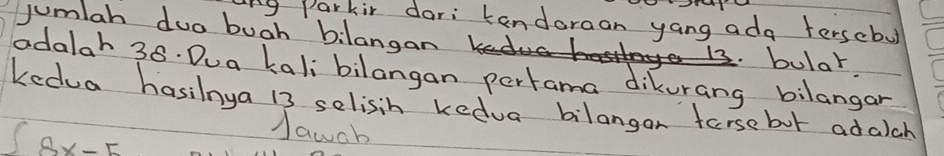 ang Parkir dari kendaraan yang ada tersebu
Jumlah dua buah bilangan kedua hasilnya 13. bular.
adalah 38. Dua kali bilangan pertama dikurang bilangan
kedua hasilnya 13 selisih kedua bilangan tersebut adalah
Jawab
8x-5